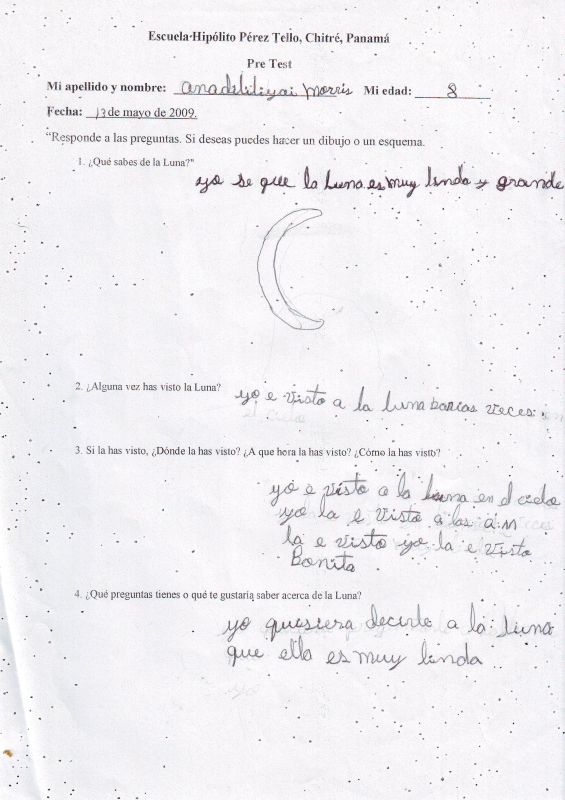 Escuela Hipólito Pérez Tello, Chitré, Panamá
Pre Test
Mi apellido y nombre: Morris Mi edad: 8
Fecha: 13 de mayo de 2009.
“Responde a las preguntas. Si deseas puedes hacer un dibujo o un esquema.
1. ¿Qué sabes de la Luna?"
yo se que la luna es muy linda y grande
2. ¿Alguna vez has visto la Luna?
yo e visto a la luna barias veces.
3. Si la has visto, ¿Dónde la has visto? ¿A que hora la has visto? ¿Cómo la has visto?
yo e visto a la luna en el cielo
yo la e visto a las a:m
la e visto yo la e visto
Bonita.
4. ¿Qué preguntas tienes o qué te gustaría saber acerca de la Luna?
yo quisiera decirle a la luna
que ella es muy linda